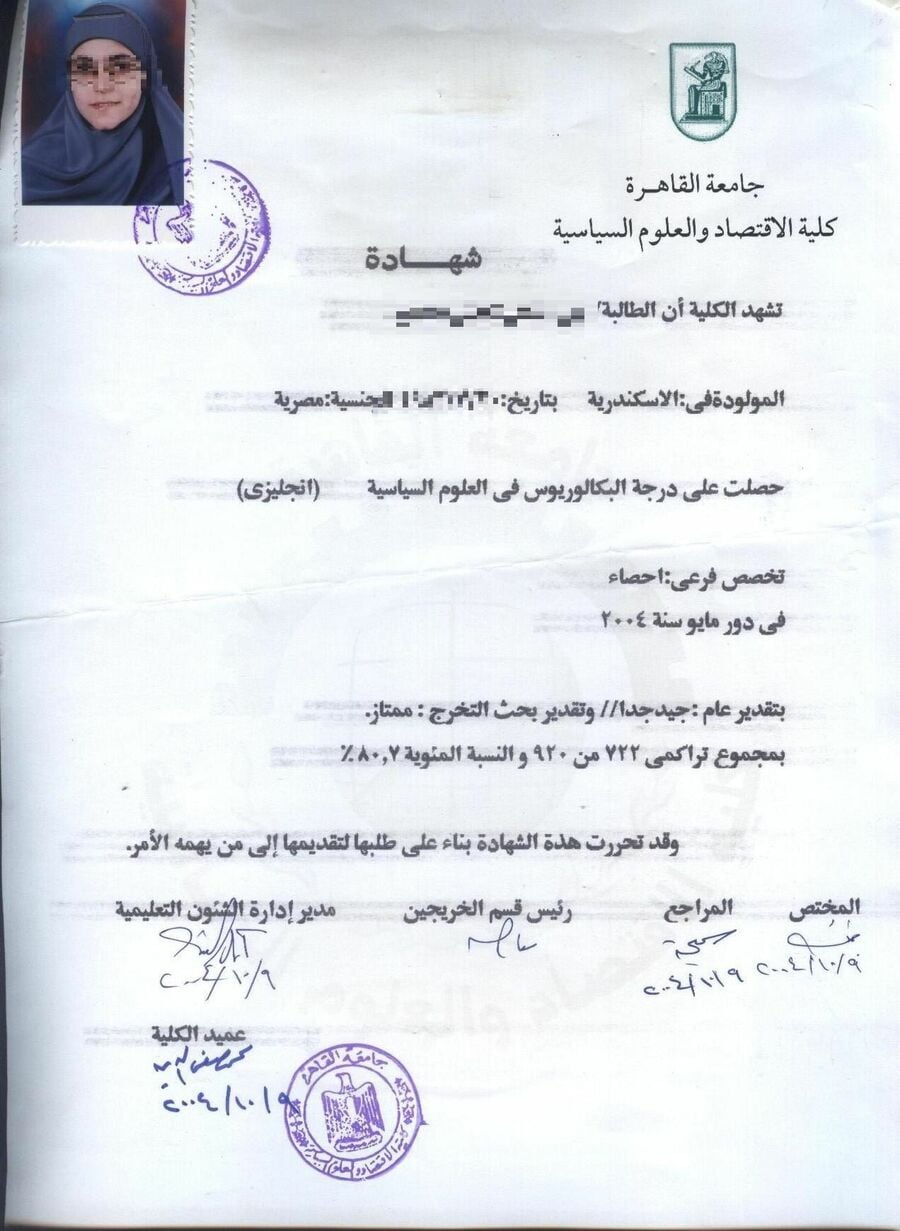 جامعة القاهرة
كلية الاقتصاد والعلوم السياسية
شهـــادة
تشهد الكلية أن الطالبة/
المولودةفى:الاسكندرية بتاريخ: الجنسية:مصرية
حصلت على درجة البكالوريوس فى العلوم السياسية (انجليزى)
تخصص فرعى:احصاء
فى دور مايو سنة ٢٠٠٤
بتقدير عام :جيدجدا// وتقدير بحث التخرج : ممتاز.
بمجموع تراكمى ٧٢٢ من ٩٢٠ و النسبة المئوية ٨٠,٧ ٪
وقد تحررت هذة الشهادة بناء على طلبها لتقديمها إلى من يهمه الأمر.
المختص المراجع رئيس قسم الخريجين مدير إدارة الشئون التعليمية
٢٠٠٤/١٠/٩ ٢٠٠٤/١٠/٩ ٢٠٠٤/١٠/٩
عميد الكلية
٢٠٠٤/١٠/٩
جامعة القاهرة
كلية الاقتصاد والعلوم السياسية